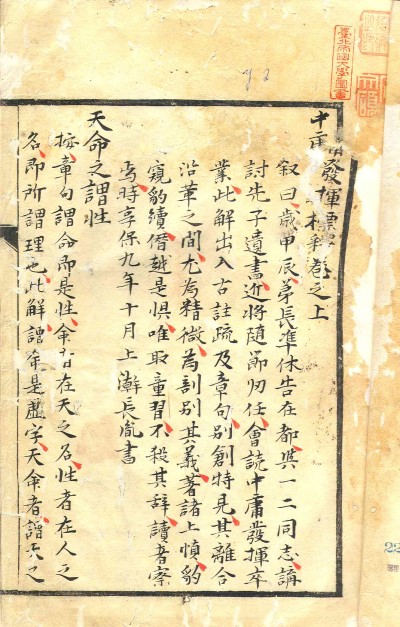 中庸發揮標釋卷之上
叙曰歲甲辰弟長準休告在都與一二同志講
討先子遺書近將隨節归任會説中庸發揮卒
業此解出入古註疏及章句別創特見其離合
沿革之間尤為精微為剖別其義著諸上慎豹
窺豹續僭越是惧唯取童習不殺其辞讀者察
焉時享保九年十月上澣長胤書
天命之謂性
標章句謂命即是性命者在天之名性者在人之
名即所謂理也此解謂命是虛字天命者謂天之
臺北帝國大學圖書
22